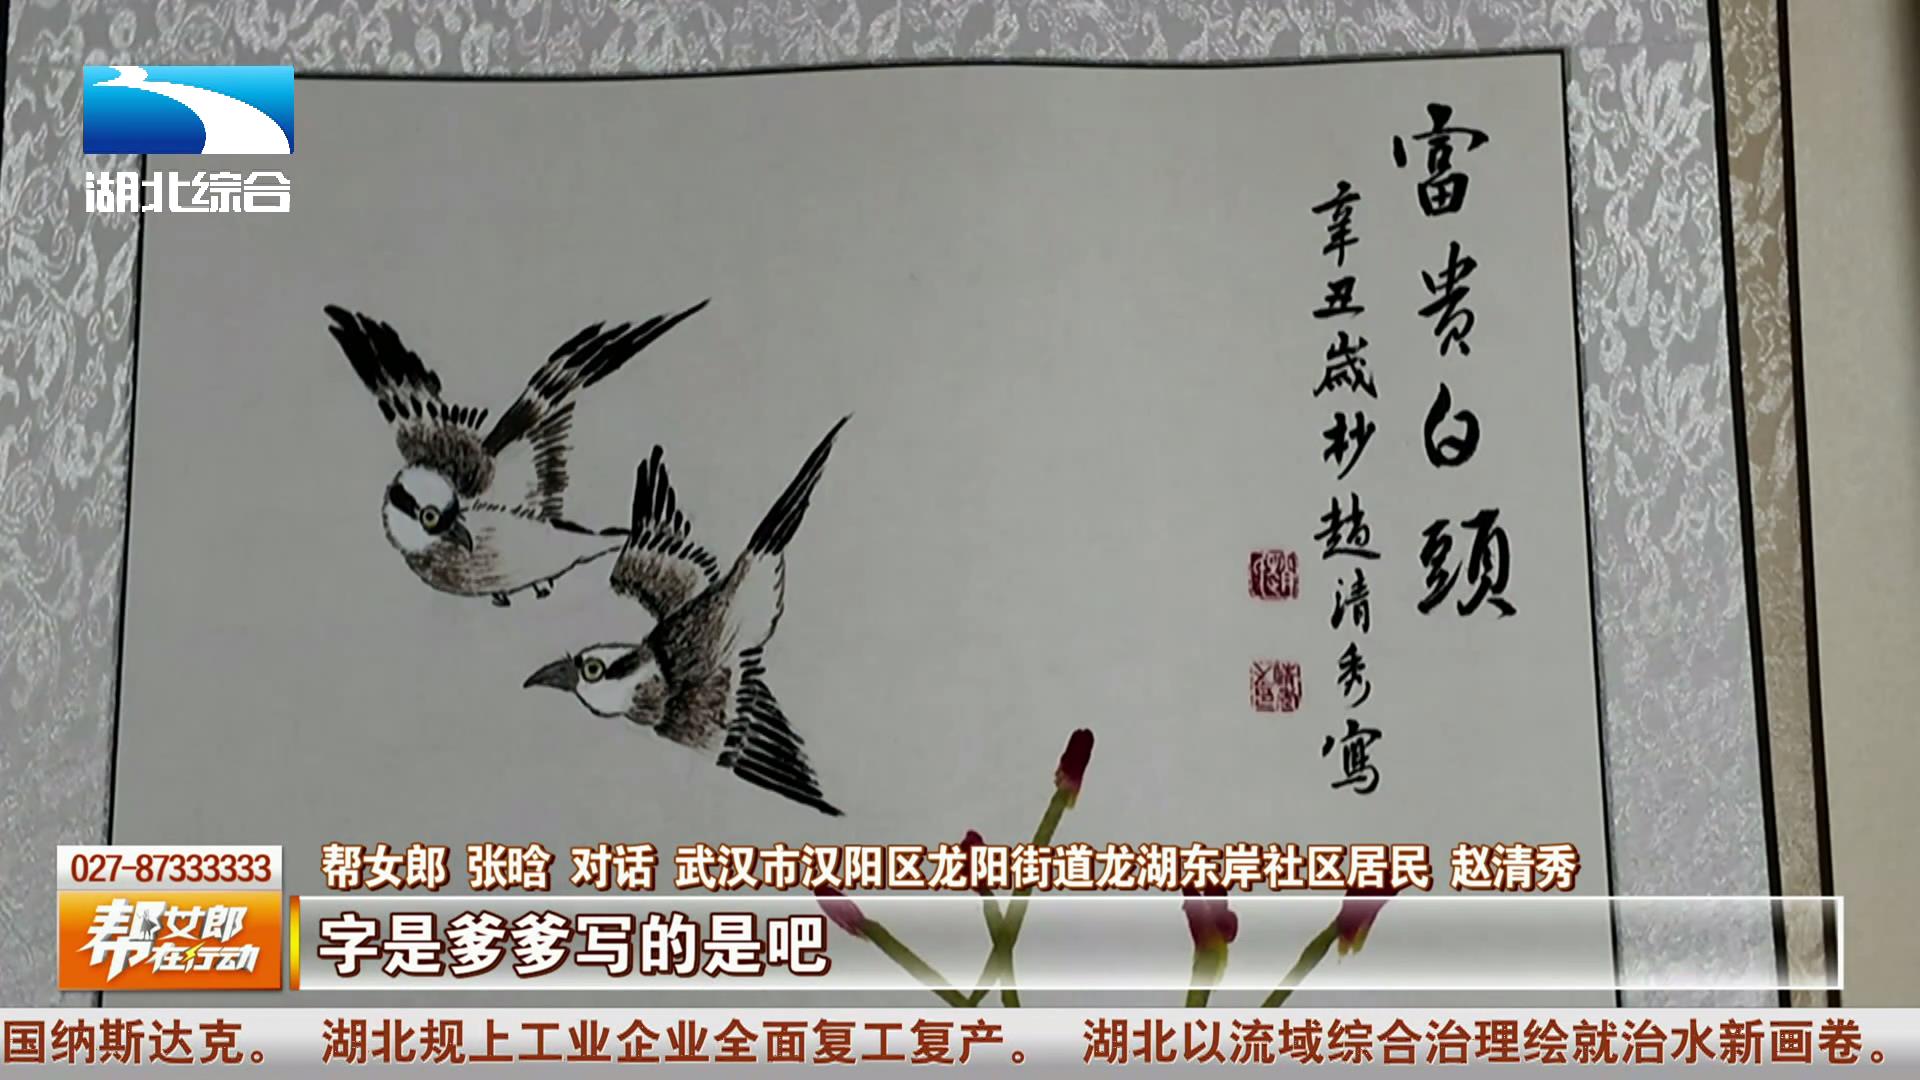 湖北综合
富贵白頭
辛丑歲杪趙清秀寫
027-87333333
帮女郎在行动
帮女郎 张晗 对话 武汉市汉阳区龙阳街道龙湖东岸社区居民 赵清秀
字是爹爹写的是吧
国纳斯达克。 湖北规上工业企业全面复工复产。 湖北以流域综合治理绘就治水新画卷。